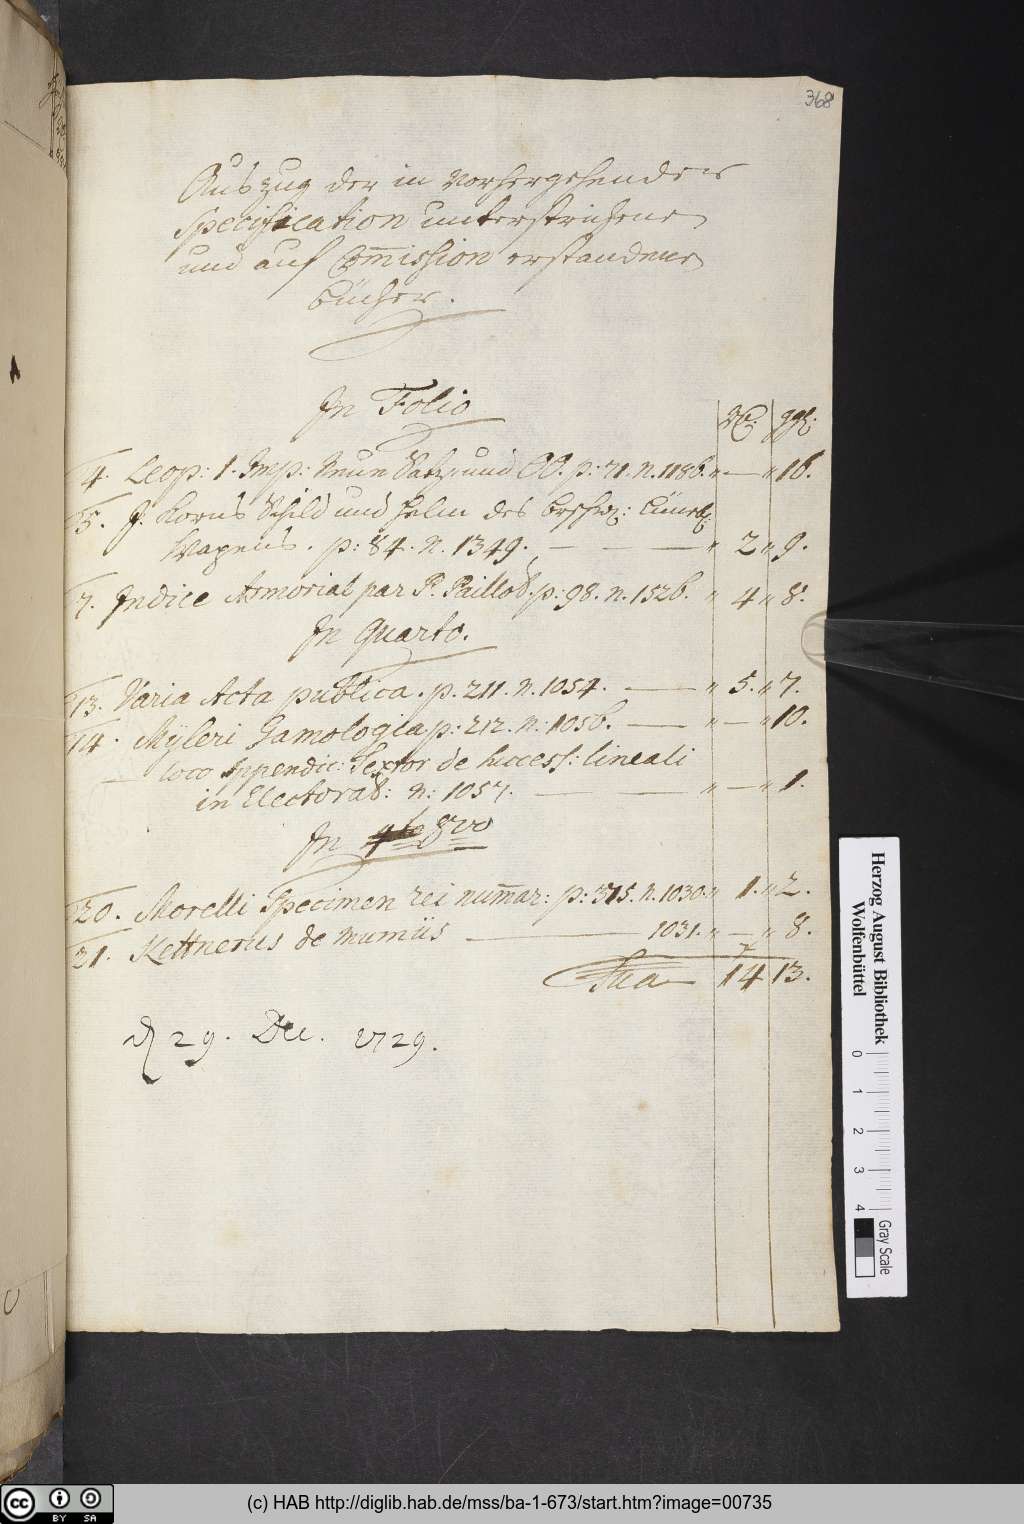 368
Auszug der in vorhergehenden
Specification unterstrichene
und auf Com̅ission erstandene
Bücher.
In Folio
Rthl: ggl:
4. Leop: 1. Imp: Neun und OO. p: 71. n. 1186. " — " 16.
5. J. Horns Schild und Helm des Lüneb:
Wapens. p: 84. n. 1349. — — — " 2 " 9.
7. Indice Armorial par P. Paillot. p: 98. n. 1526. " 4 " 8.
In Quarto.
13. Varia Acta publica. p. 211. n. 1054. — " 5. " 7.
14. Myleri Gamologia p: 212. n: 1056. — " — " 10.
loco Appendic: Textor de Success: lineali
in Electorat: n: 1057. — — " — " 1.
In 4to 8vo
20. Morelli Specimen rei num̅ar: p: 375. n. 1030. " 1. " 2.
21. Kettnerus de Mumiis — 1031. " — " 8.
Sua 14 13.
d 29. Dec. 1729.
Herzog August Bibliothek
Wolfenbüttel
0 1 2 3 4
Gray Scale
cc BY SA
(c) HAB http://diglib.hab.de/mss/ba-1-673/start.htm?image=00735